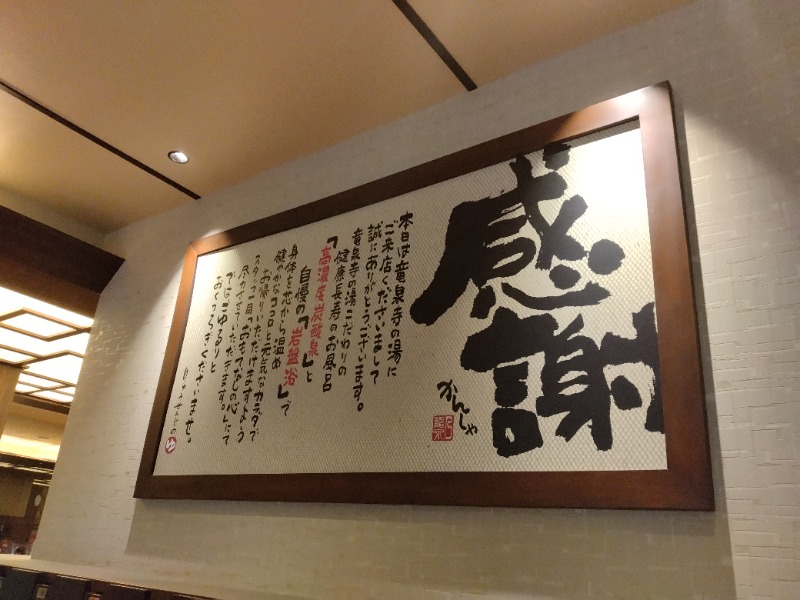 感謝
かんしゃ
本日は竜泉寺の湯に
ご来店くださいまして
誠にありがとうございます。
竜泉寺の湯こだわりの
健康長寿のお風呂
「高濃度炭酸泉」と
自慢の「岩盤浴」で
身体を芯から温め
健やかなココロと元気なカラダで
お帰りいただけますよう
スタッフ一同「おもてなしの心」にて
尽力させていただきます。
ではごゆるりと
おくつろぎくださいませ。